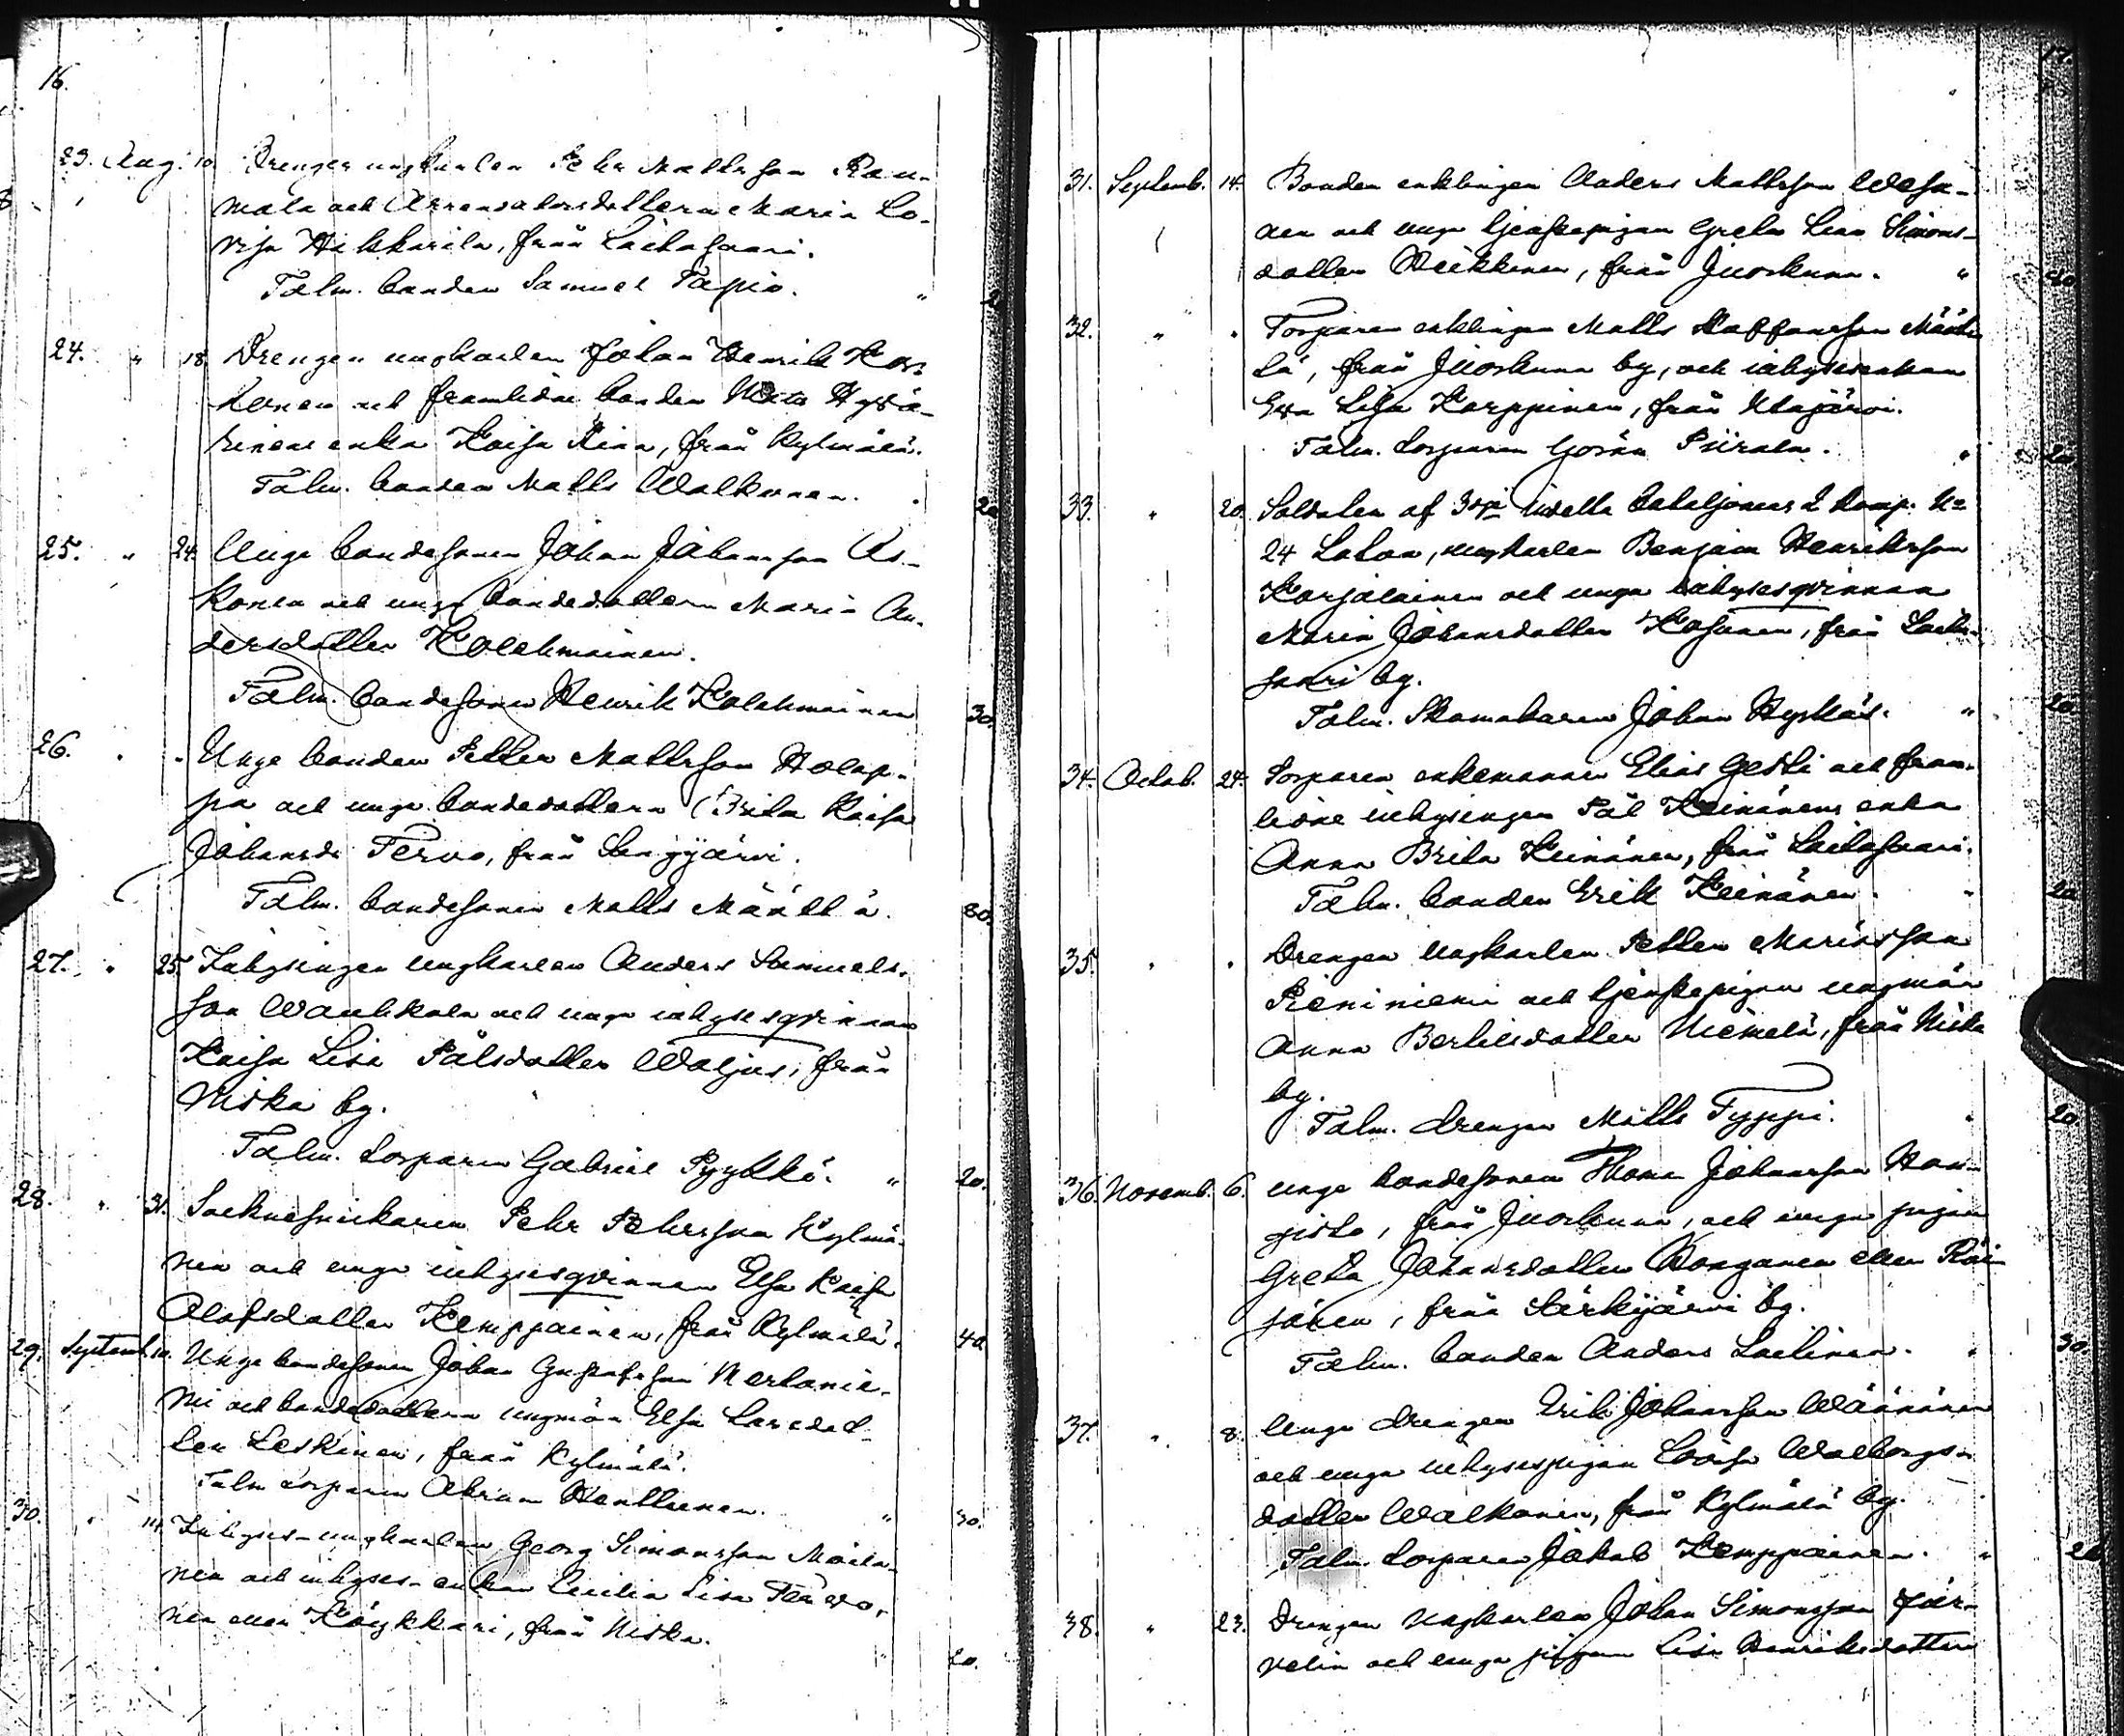 16.
23. Aug. 10. Drengen ungkarlen Pehr Mattsson Rau-
mala och Arrendatorsdottern Maria Lo-
visa Hikkarila, från Laitasaari.
Talm. bonden Samuel Tapio. "
24. " 18 Drengen ungkarlen Johan Henrik Kor-
honen och framlidne bonden Hyvä-
rinens enka Kaisa Kinn, från Kylmälä.
Talm. bonden Matts Walkonen. " 20
25. " 24. Unge bondesonen Johan Johansson As-
konen och unga bondedottern Maria An-
dersdotter Kolehmainen.
Talm. bondesonen Henrik Kolehmainen 30.
26. " " Unge bonden Petter Mattsson Holap-
pa och unga bondedottern Brita Kaisa
Johansdr Tervo, från Sangijärvi.
Talm. bondesonen Matts Määttä. 80.
27. " 25. Inhysingen ungkarlen Anders Samuels-
son Wanhkala och unga inhysesqvinnan
Kaisa Lisa Pålsdotter Waljus, från
Niska by.
Talm. torparen Gabriel Pyykkö. " 20.
28. " 31. Sockensnickaren Pehr Pehrsson Kylmä-
nen och unga inhysesqvinnan Elsa Kaisa
Olofsdotter Kemppainen, från Kylmälä. 40
29. Septemb. 10. Unge bondesonen Johan Gustafsson Merlanie-
mi och bondedottern ungmön Elsa Larsdot-
ter Leskinen, från Kylmälä.
Talm torparen Abram Henttunen. " 30.
30. " 14. Inhyses-ungkarlen Georg Simonsson Moila-
nen och inhyses-enkan Cecilia Lisa Tervo-
nen eller Köykkäri, från Niska. " 20.
17.
31. Septemb. 14. Bonden enklingen Anders Mattsson Wesa-
nen och unga tjenstepigan Greta Lisa Simons-
dotter Heikkinen, från Juorkuna. " 20
32. " " Torparen enklingen Matts Staffansson Määt-
tä, från Juorkuna by, och inhysesenkan
Eva Lisa Karppinen, från Utajärvi.
Talm. torparen Göran Piirala. " 20
33. " 20. Soldaten af 3dje indelta bataljonens 2 komp. No
24 Laton, ungkarlen Benjam Henriksson
Karjalainen och unga inhysesqvinnan
Maria Johansdotter Kosunen, från Laita-
saari by.
Talm. Skomakaren Johan Hyrkäs. " 20
34. Octob. 24. Torparen enkemannen Elias Gesti och fram-
lidne inhysingen Pål Keinänens enka
Anna Brita Keinänen, från Laitasaari.
Talm. bonden Erik Keinänen. " 20
35. " " Drengen ungkarlen Petter Mariasson
Pieniniemi och tjenstepigan ungmön
Anna Bertilsdotter Niemelä, från Niska
by.
Talm. drengen Matts Tyyppi. " 20
36. Novemb. 6. unge bondesonen Thomas Johansson Haa-
pisto, från Juorkuna, och unga pigan
Greta Johansdotter Honganen eller Räi-
sänen, från Särkijärvi by.
Talm. bonden Anders Laitinen. " 30.
37. " 8. Unge drengen Erik Johansson Wäänänen
och unga inhysespigan Lovisa Walborgs-
dotter Walkonen, från Kylmälä by.
Talm. torparen Jakob Kemppainen. " 20
38. " 23. Drengen ungkarlen Johan Simonsson Jär-
velin och unga pigan Lisa Henriksdotter